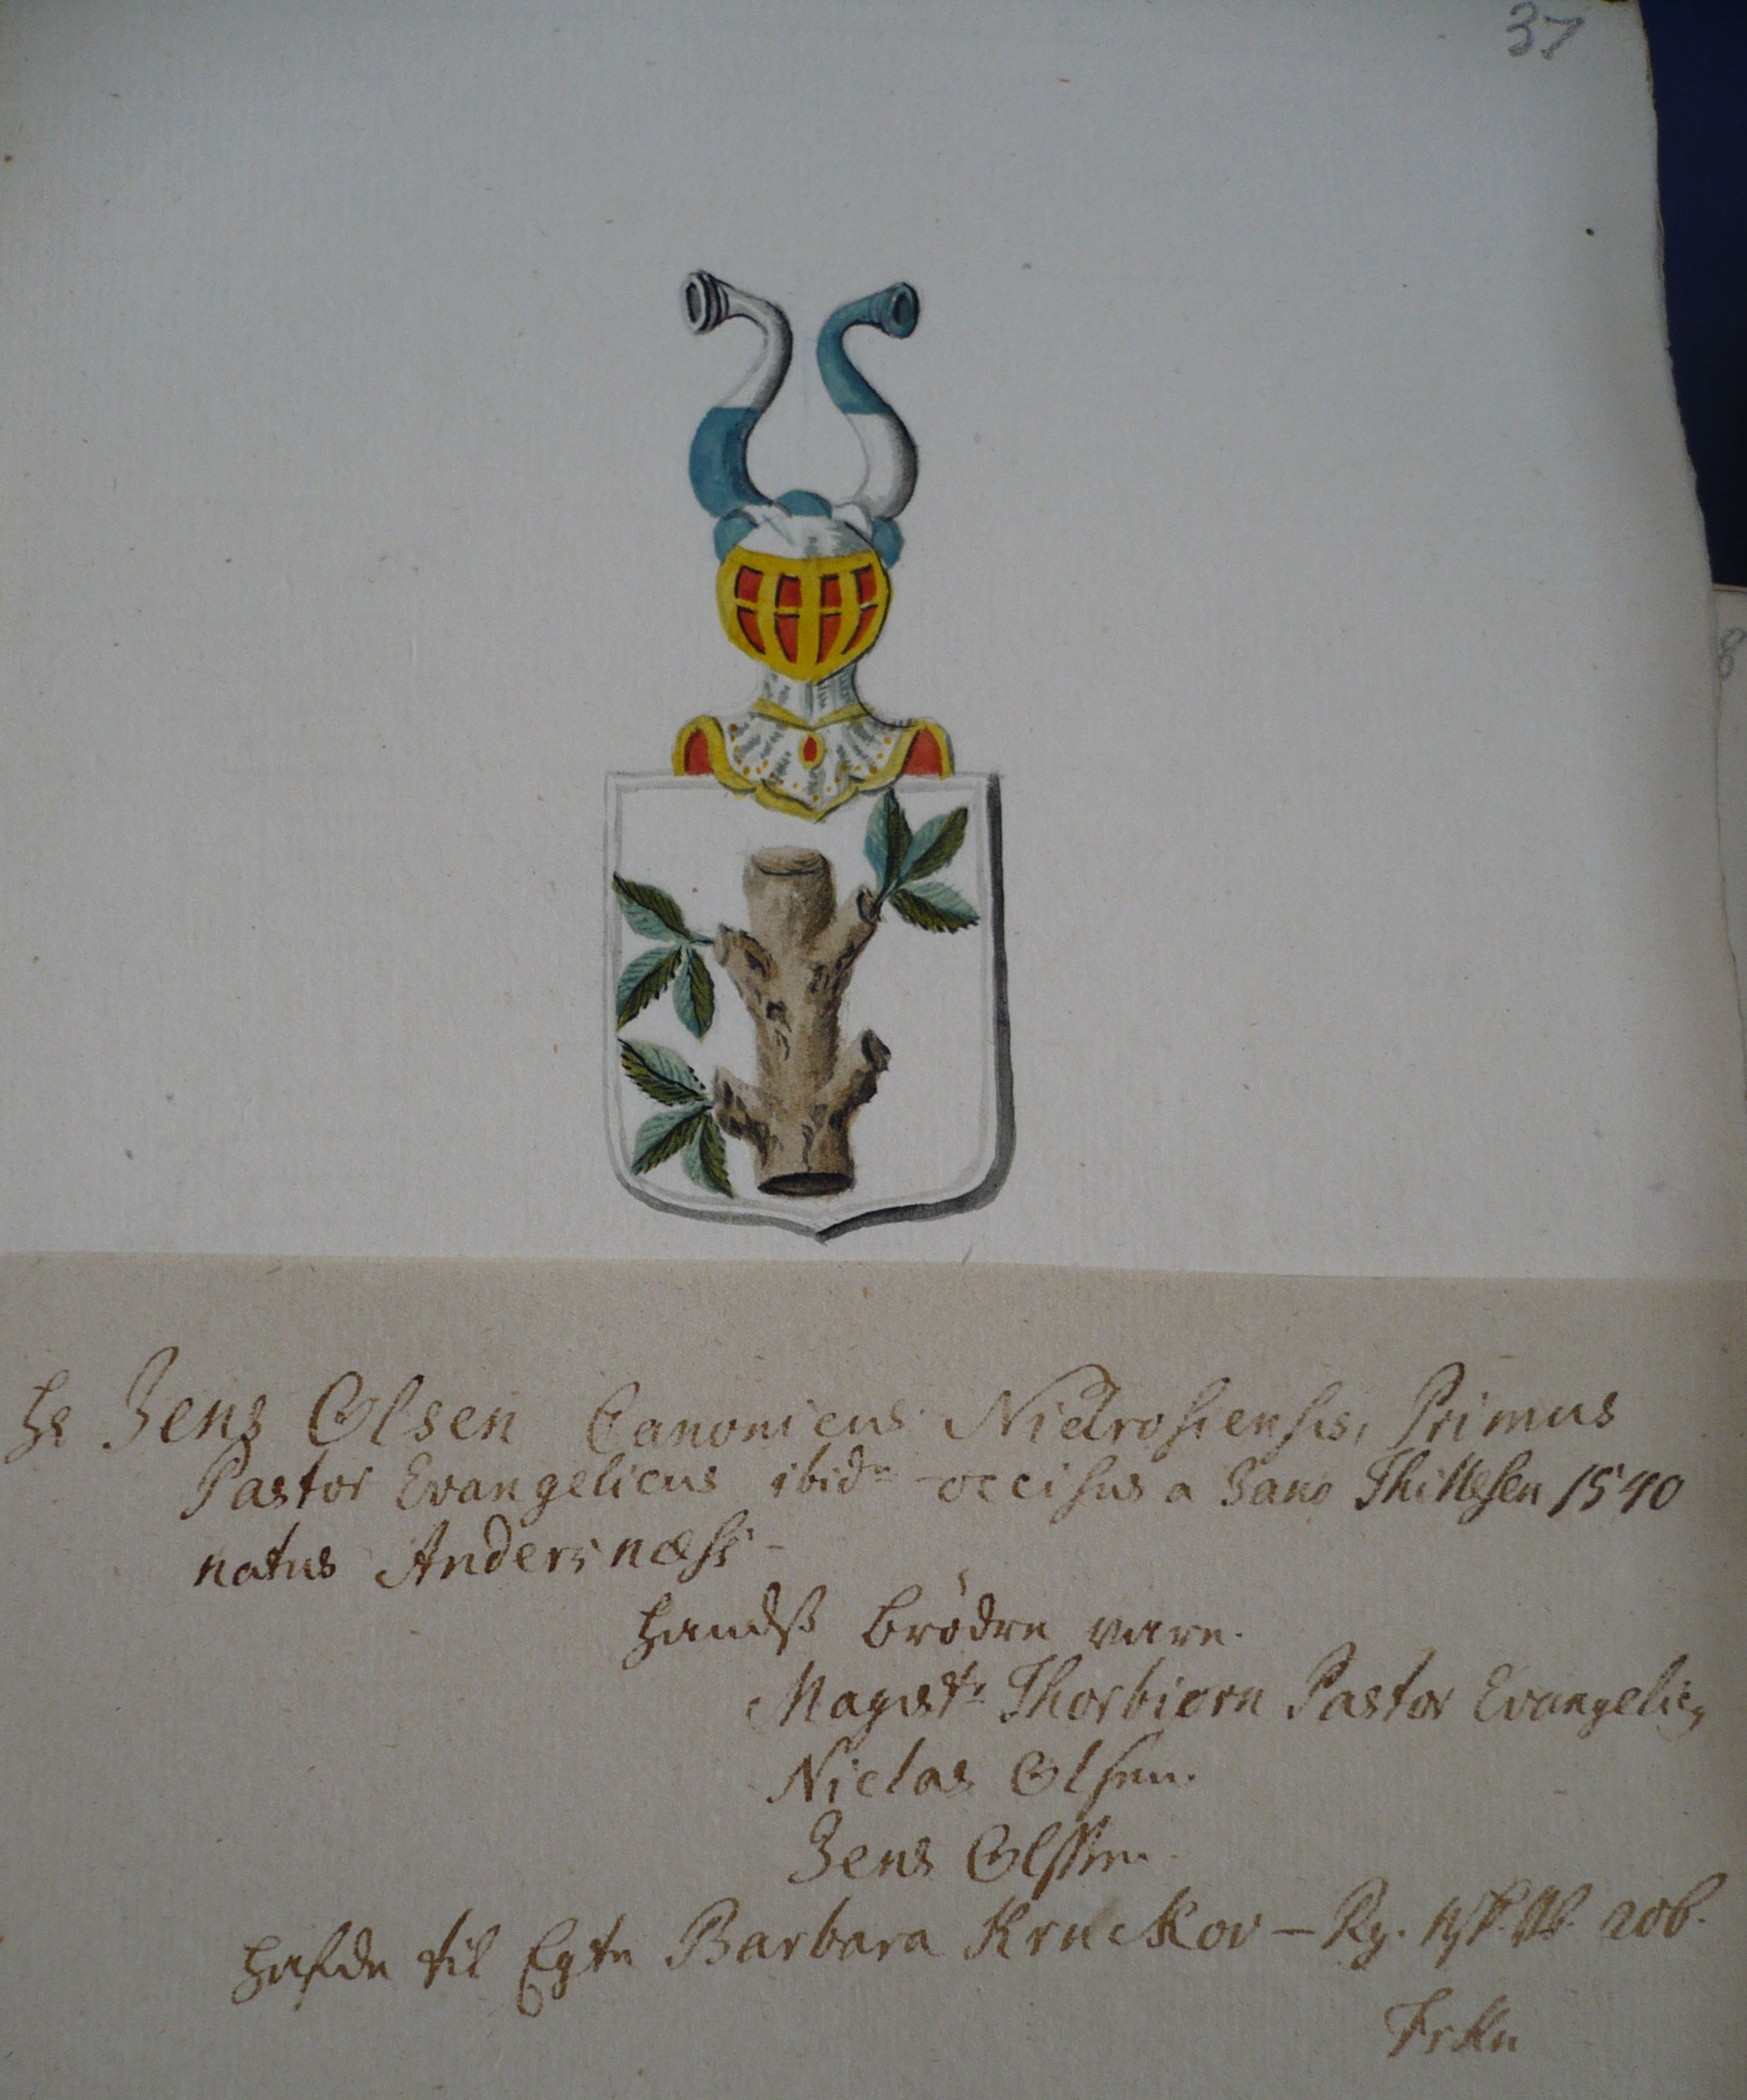 37
Hr Jens Olsen Canonicus Nidrosiensis, Primus
Pastor Evangelicus ibid: occisus a Jano Thillesen 1540
natus Andersnæss
Handß Brödre vare.
Magist: Thorbiørn Pastor Evangelic,
Niclas Olsen.
Jens Olssen.
Hafde til Egte Barbara Kruckow —
8